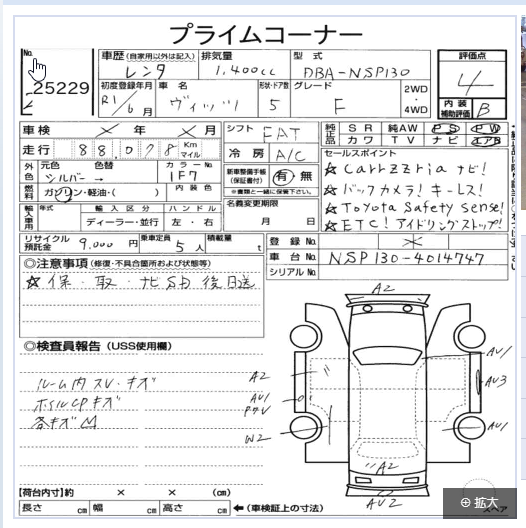 プライムコーナー
No.
25229
車歴 (自家用以外は記入)
レンタ
排気量
1,400cc
型式
DBA-NSP130
評価点
4
内装補助評価 B
初度登録年月
R1/6月
車名
ヴィッツ
形状・ドア数
5
グレード
F
2WD・4WD
車検 ✕年 ✕月
シフト FAT
純正品 SR 純AW PS PW
カワ TV ナビ エアB
走行 88,078 Km マイル
冷房 A/C
セールスポイント
☆Carrzzria ナビ!
☆バックカメラ! キーレス!
☆Toyota Safety Sense!
☆ETC! アイドリングストップ!
外色 元色 色替
シルバー →
カラーNo.
1F7
新車整備手帳(保証書付)
有・無
※書類と一緒に保管下さい。
燃料 ガソリン・軽油・( )
内装色
輸入車用 年式 輸入区分 ハンドル
ディーラー・並行 左・右
名義変更期限
月 日
リサイクル預託金 9,000円
乗車定員 5人
積載量 t
登録No. ✕
車台No. NSP130-4014747
シリアルNo.
◎注意事項 (修復・不具合箇所および状態等)
☆保・取・ナビSD 後日送
◎検査員報告 (USS使用欄)
ルーム内スレ・キズ
ホイルCPキズ
各キズ
A2
A2
AU1
W2
AU1
AU3
AU1
A2
AU2
【荷台内寸】約 × × (cm)
長さ cm 幅 cm 高さ cm ←(車検証上の寸法)
スペア
拡大